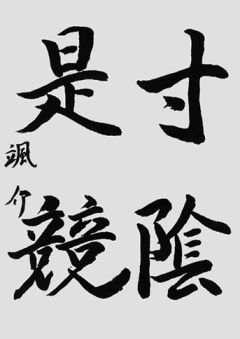 寸陰
是競
颯介